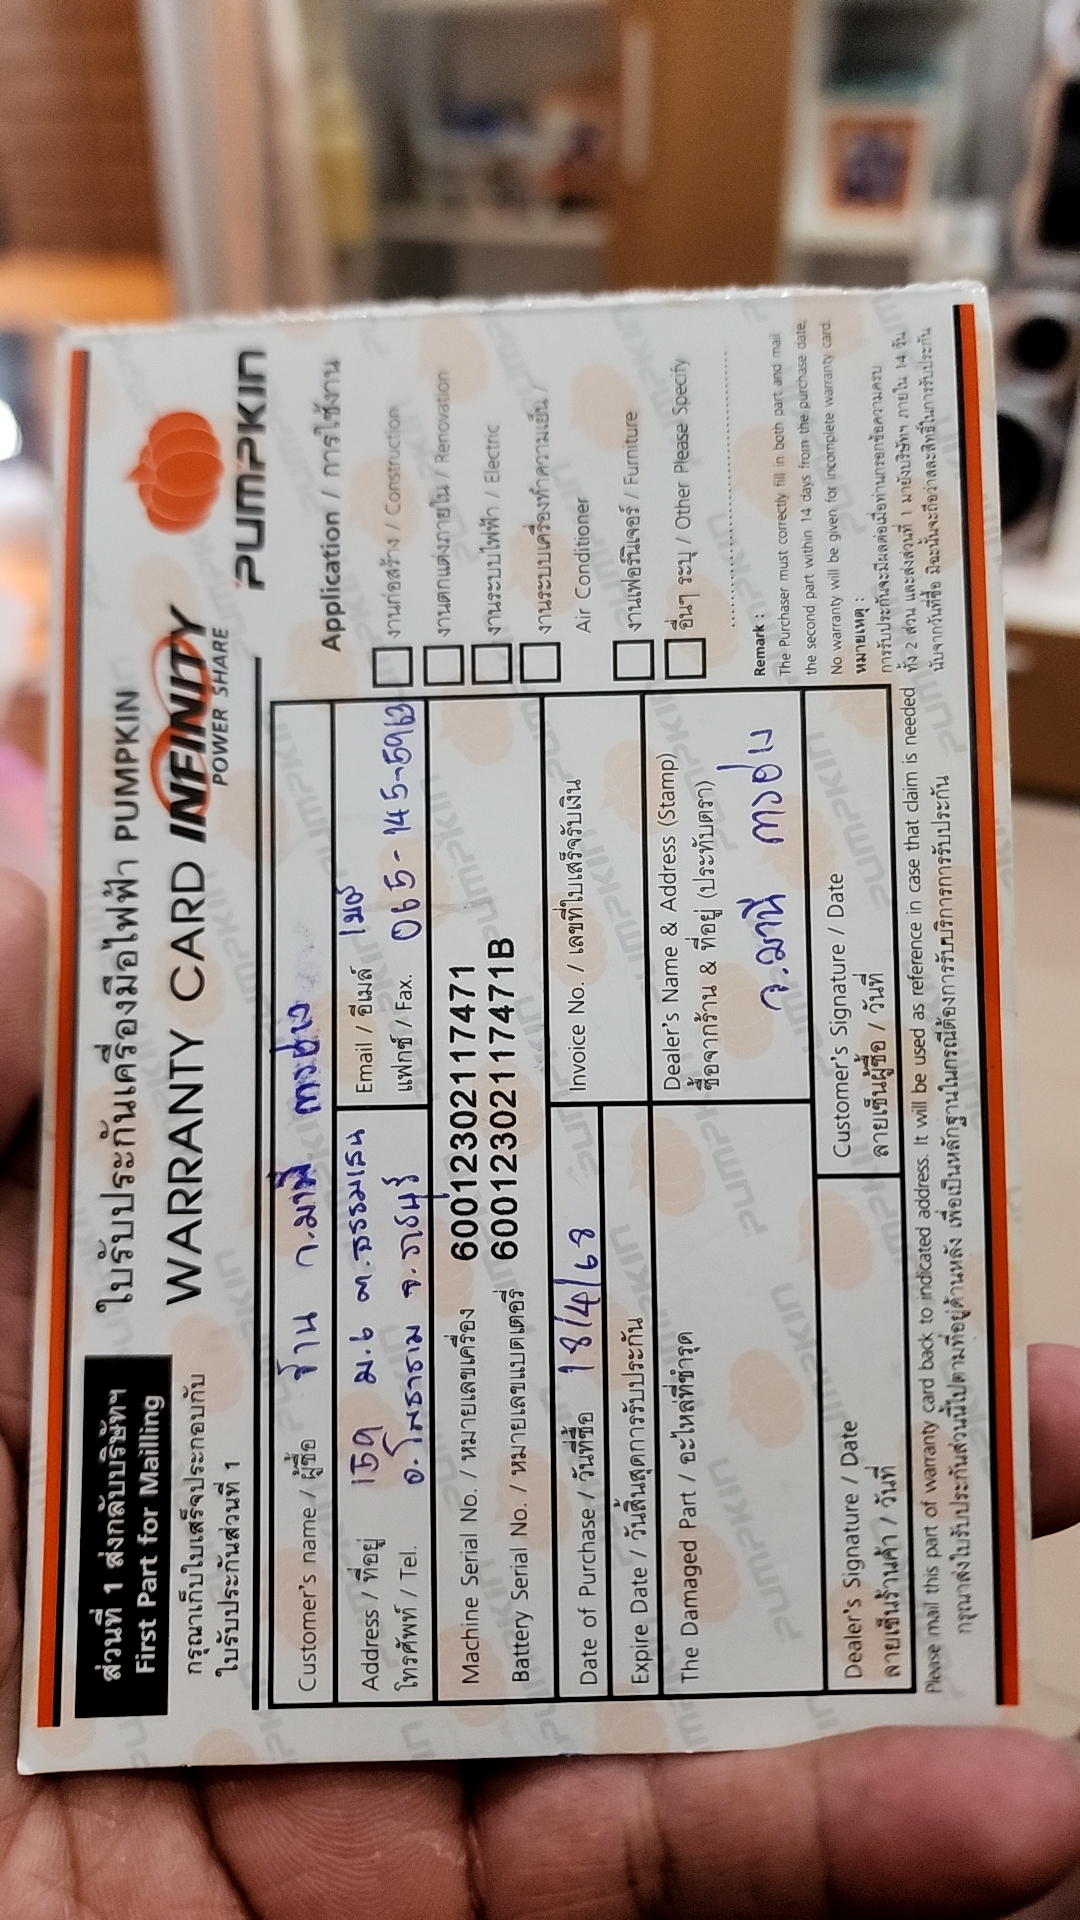 ส่วนที่ 1 ส่งกลับบริษัทฯ
First Part for Mailling
กรุณาเก็บใบเสร็จประกอบกับ
ใบรับประกันส่วนที่ 1
ใบรับประกันเครื่องมือไฟฟ้า PUMPKIN
WARRANTY CARD INFINITY
POWER SHARE
PUMPKIN
Customer's name / ผู้ซื้อ ร้าน ว.มานี การช่าง
Address / ที่อยู่ ม.6 ต.ธรรมเสน
โทรศัพท์ / Tel. อ.โพธาราม จ.ราชบุรี
Email / อีเมล์
แฟกซ์ / Fax. 065-145-5963
Machine Serial No. / หมายเลขเครื่อง 60012302117471
Battery Serial No. / หมายเลขแบตเตอรี่ 60012302117471B
Date of Purchase / วันที่ซื้อ 18/4/68
Invoice No. / เลขที่ใบเสร็จรับเงิน
Expire Date / วันสิ้นสุดการรับประกัน
The Damaged Part / อะไหล่ที่ชำรุด
Dealer's Name & Address (Stamp)
ซื้อจากร้าน & ที่อยู่ (ประทับตรา)
ว.มานี การช่าง
Dealer's Signature / Date
ลายเซ็นร้านค้า / วันที่
Customer's Signature / Date
ลายเซ็นผู้ซื้อ / วันที่
Application / การใช้งาน
งานก่อสร้าง / Construction
งานตกแต่งภายใน / Renovation
งานระบบไฟฟ้า / Electric
งานระบบเครื่องทำความเย็น /
Air Conditioner
งานเฟอร์นิเจอร์ / Furniture
อื่นๆ ระบุ / Other Please Specify
Remark :
The Purchaser must correctly fill in both part and mail
the second part within 14 days from the purchase date,
No warranty will be given for incomplete warranty card.
หมายเหตุ :
การรับประกันจะมีผลต่อเมื่อท่านกรอกข้อความครบ
ทั้ง 2 ส่วน และส่งส่วนที่ 1 มายังบริษัทฯ ภายใน 14 วัน
นับจากวันที่ซื้อ มิฉะนั้นจะถือว่าสละสิทธิ์ในการรับประกัน
Please mail this part of warranty card back to indicated address. It will be used as reference in case that claim is needed
กรุณาส่งใบรับประกันส่วนนี้ไปตามที่อยู่ด้านหลัง เพื่อเป็นหลักฐานในกรณีต้องการรับบริการการรับประกัน